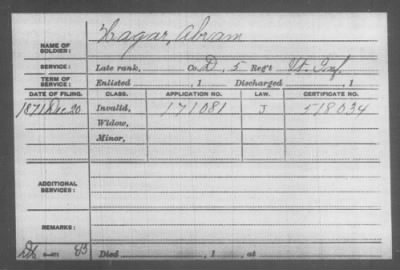 NAME OF SOLDIER: Hagar, Abram
SERVICE: Late rank, Co. D, 5 Reg't Vt. Inf.
TERM OF SERVICE: Enlisted , 1 Discharged , 1
DATE OF FILING. CLASS. APPLICATION NO. LAW. CERTIFICATE NO.
1871 Dec 20 Invalid, 171081 J 518034
Widow,
Minor,
ADDITIONAL SERVICES:
REMARKS:
Died , 1 , at